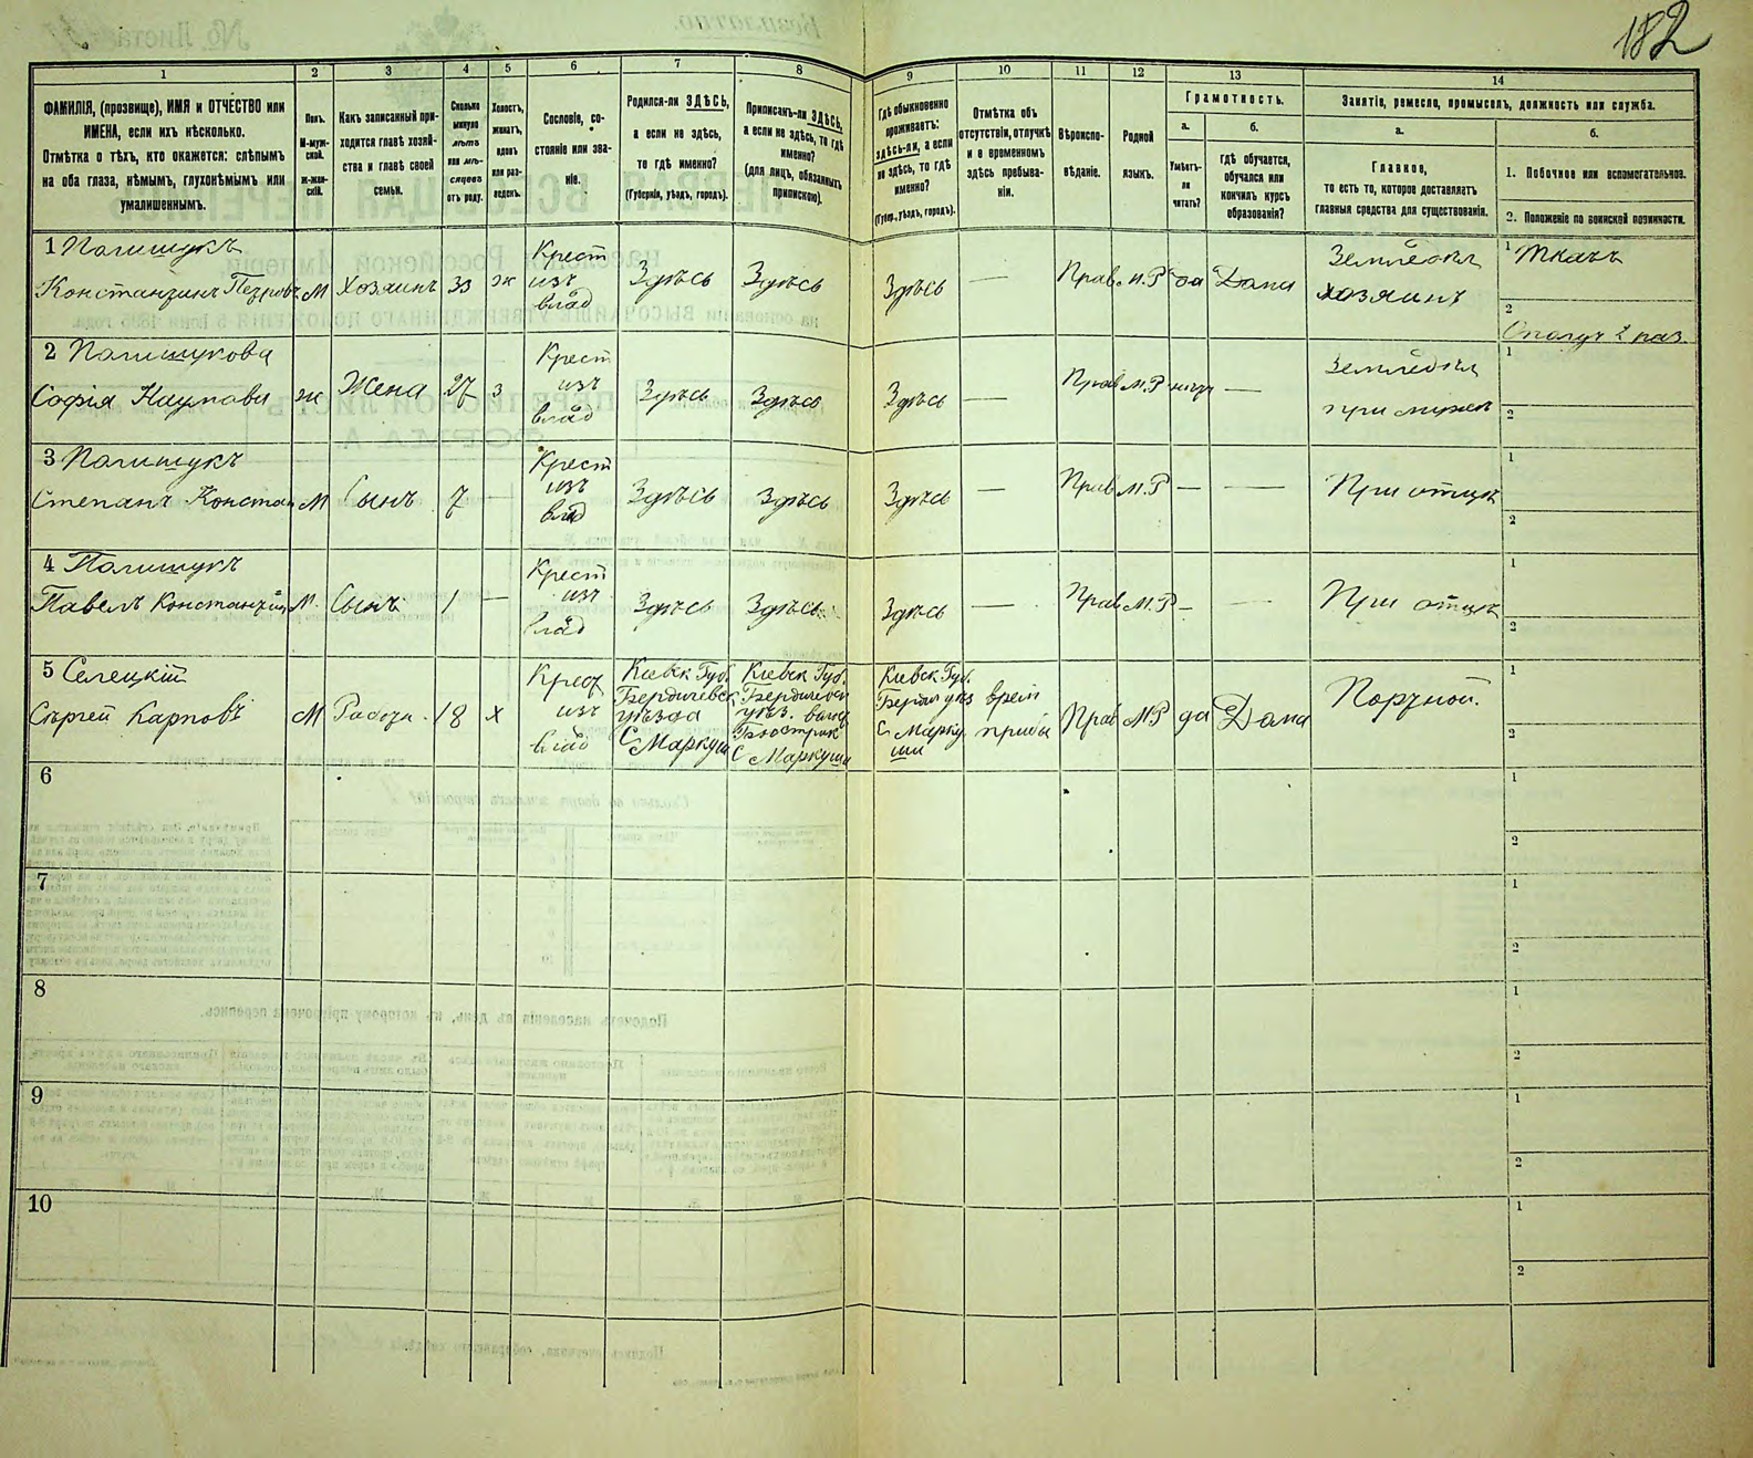 182
1 2 3 4 5 6 7 8 9 10 11 12 13 14
ФАМИЛІЯ, (прозвище), ИМЯ и ОТЧЕСТВО или
ИМЕНА, если ихъ нѣсколько.
Отмѣтка о тѣхъ, кто окажется: слѣпымъ
на оба глаза, нѣмымъ, глухонѣмымъ или
умалишеннымъ.
Полъ.
М-муж-
ской.
Ж-жен-
скій.
Какъ записанный при-
ходится главѣ хозяй-
ства и главѣ своей
семьи.
Сколько
минуло
лѣтъ
или мѣ-
сяцевъ
отъ роду.
Холостъ,
женатъ,
вдовъ
или раз-
веденъ.
Сословіе, со-
стояніе или зва-
ніе.
Родился-ли ЗДѢСЬ,
а если не здѣсь,
то гдѣ именно?
(Губернія, уѣздъ, городъ).
Приписанъ-ли ЗДѢСЬ,
а если не здѣсь, то гдѣ
именно?
(для лицъ, обязанныхъ
припискою).
Гдѣ обыкновенно
проживаетъ:
здѣсь-ли, а если
не здѣсь, то гдѣ
именно?
(Губер., уѣздъ, городъ).
Отмѣтка объ
отсутствіи, отлучкѣ
и о временномъ
здѣсь пребыва-
ніи.
Вѣроиспо-
вѣданіе.
Родной
языкъ.
Грамотность.
а.
Умѣетъ-
ли
читать?
б.
гдѣ обучается,
обучался или
кончилъ курсъ
образованія?
Занятіе, ремесло, промыселъ, должность или служба.
а.
Главное,
то есть то, которое доставляетъ
главныя средства для существованія.
б.
1. Побочное или вспомогательное.
2. Положеніе по воинской повинности.
1 Полишукъ
Константинъ Петровъ М Хозяинъ 33 ж Крест изъ влад Здѣсь Здѣсь Здѣсь — Прав. М.Р да Дома Землед хозяинъ
1 Ткачъ
2
2 Полишукова
Софія Наумова ж Жена 27 з Крест изъ влад Здѣсь Здѣсь Здѣсь — Прав М.Р — Землед при мужѣ
1
2
3 Полишукъ
Степанъ Констан М Сынъ 7 — Крест изъ влад Здѣсь Здѣсь Здѣсь — Прав М.Р — — При отцѣ
1
2
4 Полишукъ
Павелъ Константин М. Сынъ 1 — Крест изъ влад Здѣсь Здѣсь Здѣсь — Прав М.Р — — При отцѣ
1
2
5 Селецкій
Сергей Карповъ М Работн. 18 х Крест изъ влад
Киевск Губ.
Бердичевск
уѣзда
С Маркуши
Киевск Губ.
Бердичевск
уѣз. волос
С Маркуши
Киевск Губ.
Бердич уѣз
С Марку
ши
врем
прибы
Прав М.Р да Дома Портной.
1
2
6
1
2
7
1
2
8
1
2
9
1
2
10
1
2